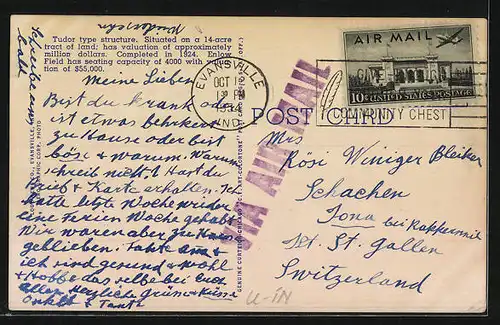 Tudor type structure. Situated on a 14-acre
tract of land; has valuation of approximately
million dollars. Completed in 1924. Enlow
Field has seating capacity of 4000 with
tion of $55,000.
Schreibe
bald
Meine Lieben
Bist du krank oder
ist etwas
zu Hause oder bist
böse & warum. Warum
schreib nicht? Hast du
Brief & Karte erhalten. Ich
hatte letzte Woche wieder
eine Ferien Woche gehabt
Wir waren aber zu Hause
geblieben.
ich sind gesund & wohl
& Hoffe das selbe bei Euch
allen Herzliche Grüsse & Küsse
Onkel & Tante
EVANSVILLE
OCT 19
IND.
AIR MAIL
10¢ UNITED STATES POSTAGE
COMMUNITY CHEST
POST CARD
VIA AIR MAIL
Mrs
Rösi Winiger Bleiker
Schachen
Jona bei Rapperswil
Kt. St. Gallen
Switzerland
U-IN